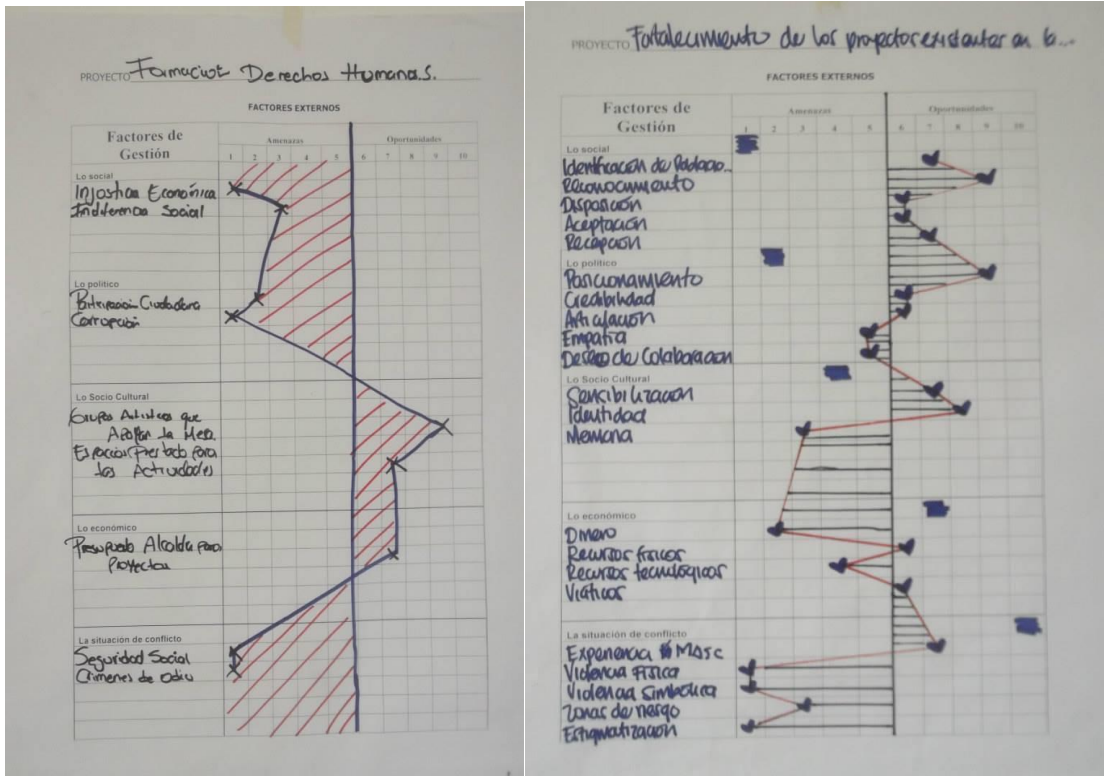 PROYECTO Formaciot Derechos Humanas.
FACTORES EXTERNOS
Factores de
Gestión
Amenazas
Oportunidades
1 2 3 4 5 6 7 8 9 10
Lo social
Injosticia Económica
Indiferencia Social
Lo político
Participacion Ciudadana
Corrupcion
Lo Socio Cultural
Grupos Artisticos que
Apoyan la Mesa
Espacios Prestado para
las Actividades
Lo económico
Presupuesto Alcaldia para
Proyectos
La situación de conflicto
Seguridad Social
Crimenes de odiu
PROYECTO Fortalecimiento de los proyectos existentes en la...
FACTORES EXTERNOS
Factores de
Gestión
Amenazas
Oportunidades
1 2 3 4 5 6 7 8 9 10
Lo social
Identificación de Poblacio...
Reconocimiento
Disposición
Aceptación
Recepción
Lo político
Posicionamiento
Credibilidad
Articulación
Empatia
Deseo de Colaboracion
Lo Socio Cultural
Sensibilización
Identidad
Memoria
Lo económico
Dinero
Recursos fisicos
Recursos tecnológicos
Viáticos
La situación de conflicto
Experiencia MASC
Violencia Fisica
Violencia Simbolica
Zonas de riesgo
Estigmatizacion